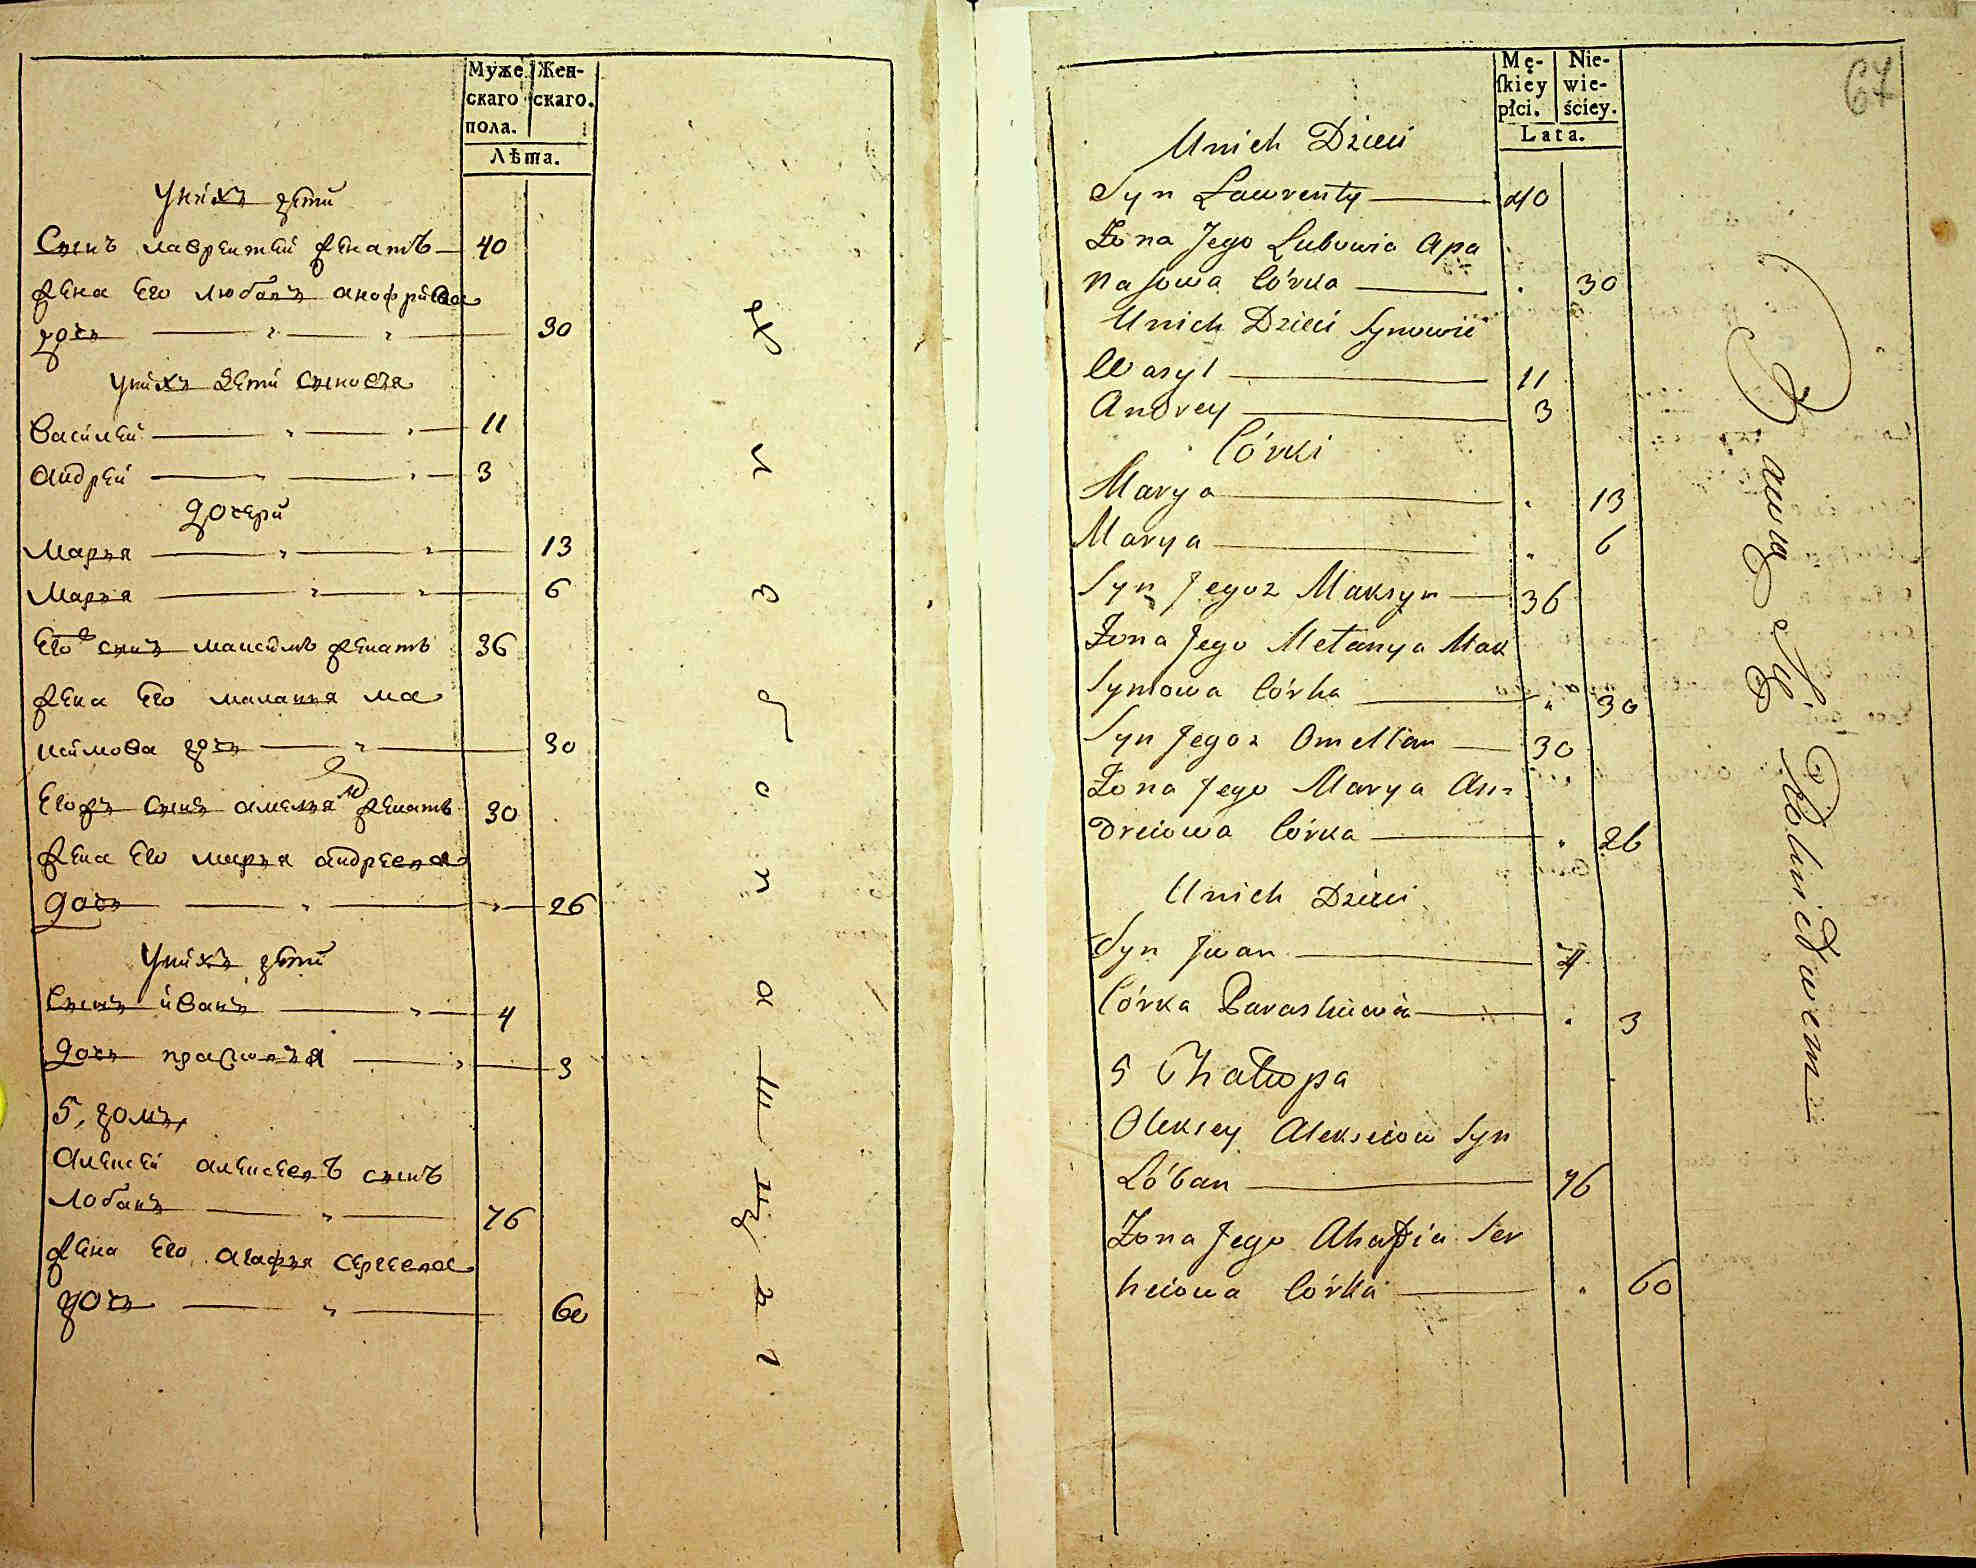 Муже
скаго
пола.
Жен-
скаго.
Лѣта.
У нихъ дѣти
Сынъ лаврентей женатъ 40
жена Его любавъ анофриева
дочь 30
У нихъ дети сыновья
Василей 11
андрей 3
дочери
Марья 13
Марья 6
Его сынъ максимъ женатъ 36
жена Его маланья ма
ксимова дочь 30
Егожъ сынъ амельян женатъ 30
жена Его марья андреева
дочь 26
У нихъ дѣти
Сынъ иванъ 4
дочь прасковья 3
5, домъ,
Алексей алексеевъ сынъ
лобанъ 76
жена Его агафья сергеева
дочь 60
67
Mę-
ſkiey
płci.
Nie-
wie-
ściey.
Lata.
Unich Dzieci
Syn Lawrenty 40
Żona Jego Lubowia Apa
nasowa Córka 30
Unich Dzieci Synowie
Wasyl 11
Andrey 3
Córki
Marya 13
Marya 6
Syn Jegoż Maksym 36
Żona Jego Melanya Mak
symowa Córka 30
Syn Jegoż Omellan 30
Żona Jego Marya An=
dreiowa Córka 26
Unich Dzieci
Syn Jwan 4
Córka Paraskiewia 3
5 Chałupa
Oleksey Alekseiow Syn
Łóban 76
Żona Jego Ahafia Ser
heiowa Córka 60